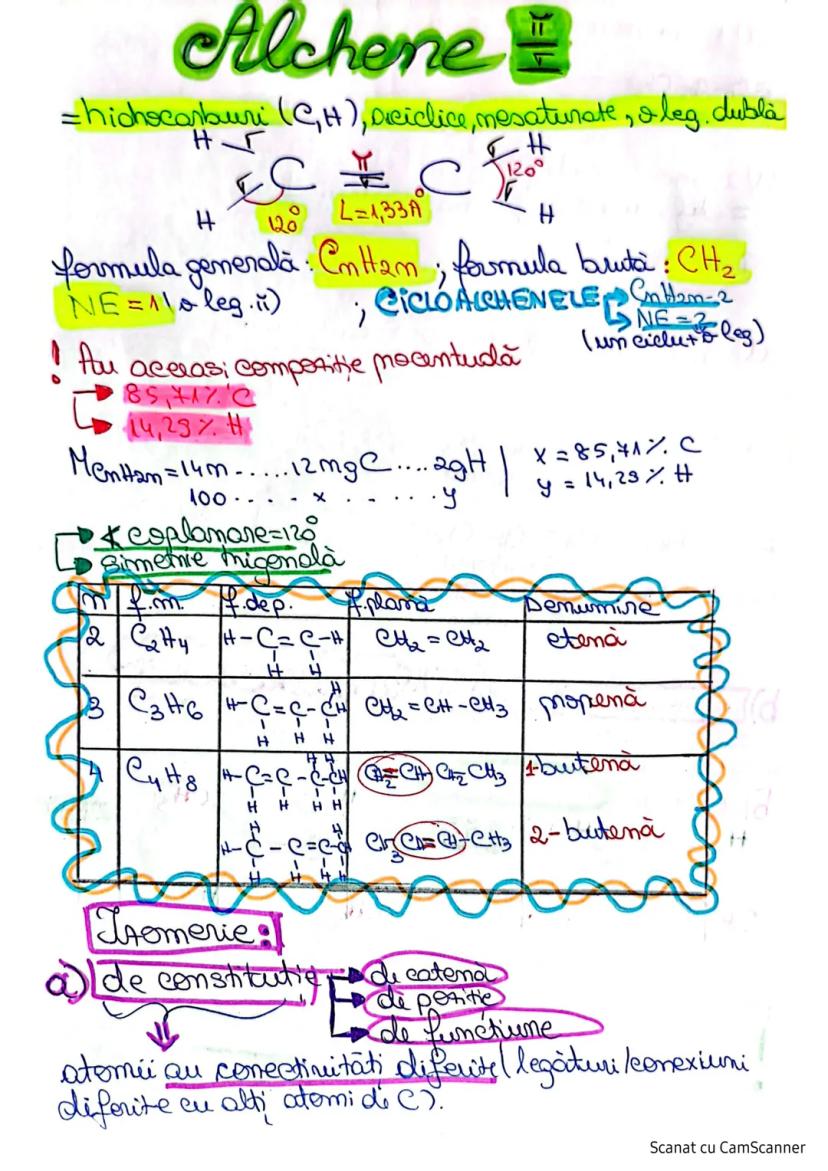 Alchene π/σ
= hidrocarburi (C,H), aciclice, nesaturate, o leg. dublă
H σ C π σ C σ H
σ σ 120°
H 120° L=1,33A° H
formula generală: CnH2n ; formula brută: CH2
NE=1 (o leg. π) ; CICLOALCHENELE CnH2n-2
NE = 2
(un ciclu + o leg)
! Au aceeași compoziție procentuală
85,71% C
14,29% H
MCnH2n = 14n ..... 12ngC .... 2gH | x = 85,71% C
100 ..... x ...... y | y = 14,29% H
∢ coplanare=120°
simetrie trigonală
n f.m. f.dep. f.plană Denumire
2 C2H4 H-C=C-H CH2=CH2 etenă
H H
H
3 C3H6 H-C=C-CH CH2=CH-CH3 propenă
H H H
H H
4 C4H8 H-C=C-C-CH CH2=CH CH2 CH3 1-butenă
H H H H
H H
H-C-C=C-C CH3 CH=CH-CH3 2-butenă
H H H H
Izomerie:
a) de constituție de catenă
de poziție
de funcțiune
atomii au conectivități diferite (legături/conexiuni
diferite cu alți atomi de C).
Scanat cu CamScanner